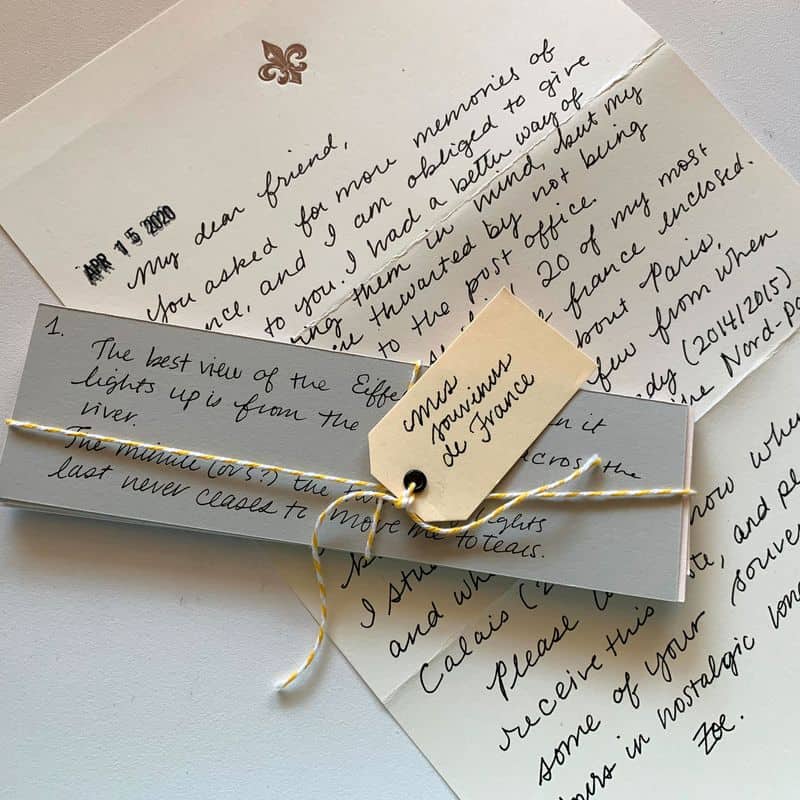 APR 15 2020
My dear friend,
You asked for more memories of
nce, and I am obliged to give
to you. I had a better way of
ing them in mind, but my
re thwarted by not being
to the post office.
20 of my most
france enclosed.
bout Paris,
few from when
dy (2014/2015)
the Nord-Pa
I stu
and wh
Calais (2
Please
now whe
receive this
te, and pl
some of your souve
ours in nostalgic lon
Zoe.
1.
The best view of the Eiffe
n it
lights up is from the
across the
river.
The minute (or 5?) the tw
lights
last never ceases to move me to tears.
Mes
souvenirs
de France